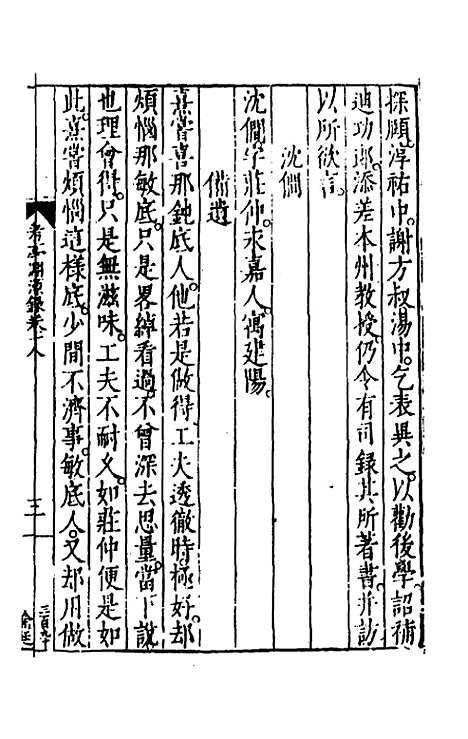 探賾淳祐中謝方叔湯中乞表異之以勸後學詔補
迪功郎添差本州教授仍令有司錄其所著書并訪
以所欲言
沈僩
沈僩字莊仲永嘉人寓建陽
備遺
熹嘗喜那鈍底人他若是做得工夫透徹時極好却
煩惱那敏底只是畧綽看過不曾深去思量當下說
也理會得只是無滋味工夫不耐久如莊仲便是如
此熹嘗煩惱這樣底少間不濟事敏底人又却用做
考亭淵源錄卷十八
三
三百九十